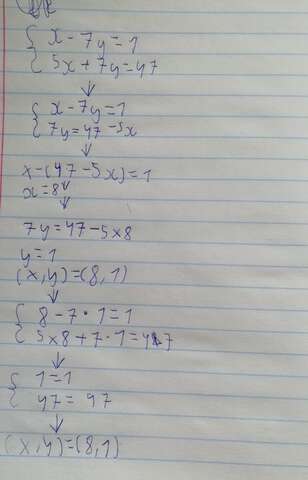 x - 7y = 1
5x + 7y = 47
↓
x - 7y = 1
7y = 47 - 5x
↓
x - (47 - 5x) = 1
x = 8
↓
7y = 47 - 5×8
y = 1
(x, y) = (8, 1)
↓
8 - 7 · 1 = 1
5×8 + 7 · 1 = 47
↓
1 = 1
47 = 47
↓
(x, y) = (8, 1)